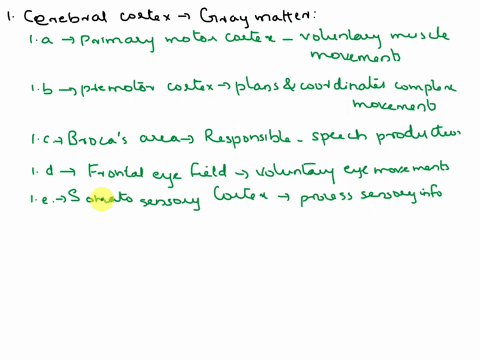 1. Cerebral cortex → Gray matter:
1.a → Primary motor cortex - voluntary muscle
movement
1.b → premotor cortex → plans & coordinates complex
movement
1.c → Broca's area → Responsible - speech production
1.d → Frontal eye field → voluntary eye movements
1.e. → Somato sensory Cortex → process sensory info